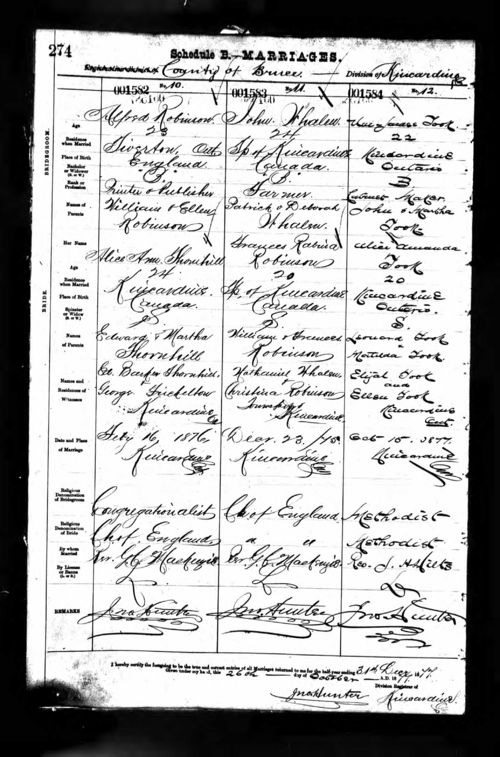 274
Schedule B.—MARRIAGES.
County of Bruce. Division of Kincardine
No. 10. No. 11. No. 12.
001582 001583 001584
BRIDEGROOM.
Alfred Robinson John Whalen Took
Age 23 24 22
Residence when Married Tiverton, Ont Tp of Kincardine Kincardine
Place of Birth England Canada. Ontario
Bachelor or Widower (B. or W.) B. B. B
Rank or Profession Printer & Publisher Farmer Cabinet Maker
Names of Parents William & Ellen Robinson Patrick & Deborah Whalen John & Martha Took
BRIDE.
Her Name Alice Ann Thornhill Frances Robinson Alice Amanda Took
Age 24 20 20
Residence when Married Kincardine Tp. of Kincardine Kincardine
Place of Birth Canada. Canada Ontario.
Spinster or Widow (S. or W.) S S S.
Names of Parents Edward & Martha Thornhill William & Frances Robinson Leonard Took Matilda Took
Names and Residences of Witnesses Thornhill. George Kincardine Nathaniel Whalen & Christina Robinson Township Kincardine Elijah Took and Ellen Took Kincardine Ont
Date and Place of Marriage 16, 1876 Kincardine Decr. 23, /75 Kincardine Oct 15. 1877. Kincardine
Religious Denomination of Bridegroom Congregationalist Ch of England Methodist
Religious Denomination of Bride Ch of England " " Methodist
By whom Married Rev. G. C. Mackenzie Rev. G. C. Mackenzie Rev. J. H. Hilts
By License or Banns (L. or B.) L L L
REMARKS Jno Hunter Jno Hunter Jno Hunter
I hereby certify the foregoing to be the true and correct entries of all Marriages returned to me for the half-year ending 31st Decr, 1877.
Given under my hand, this 26th day of October A.D. 18
Jno Hunter Division Registrar of Kincardine.